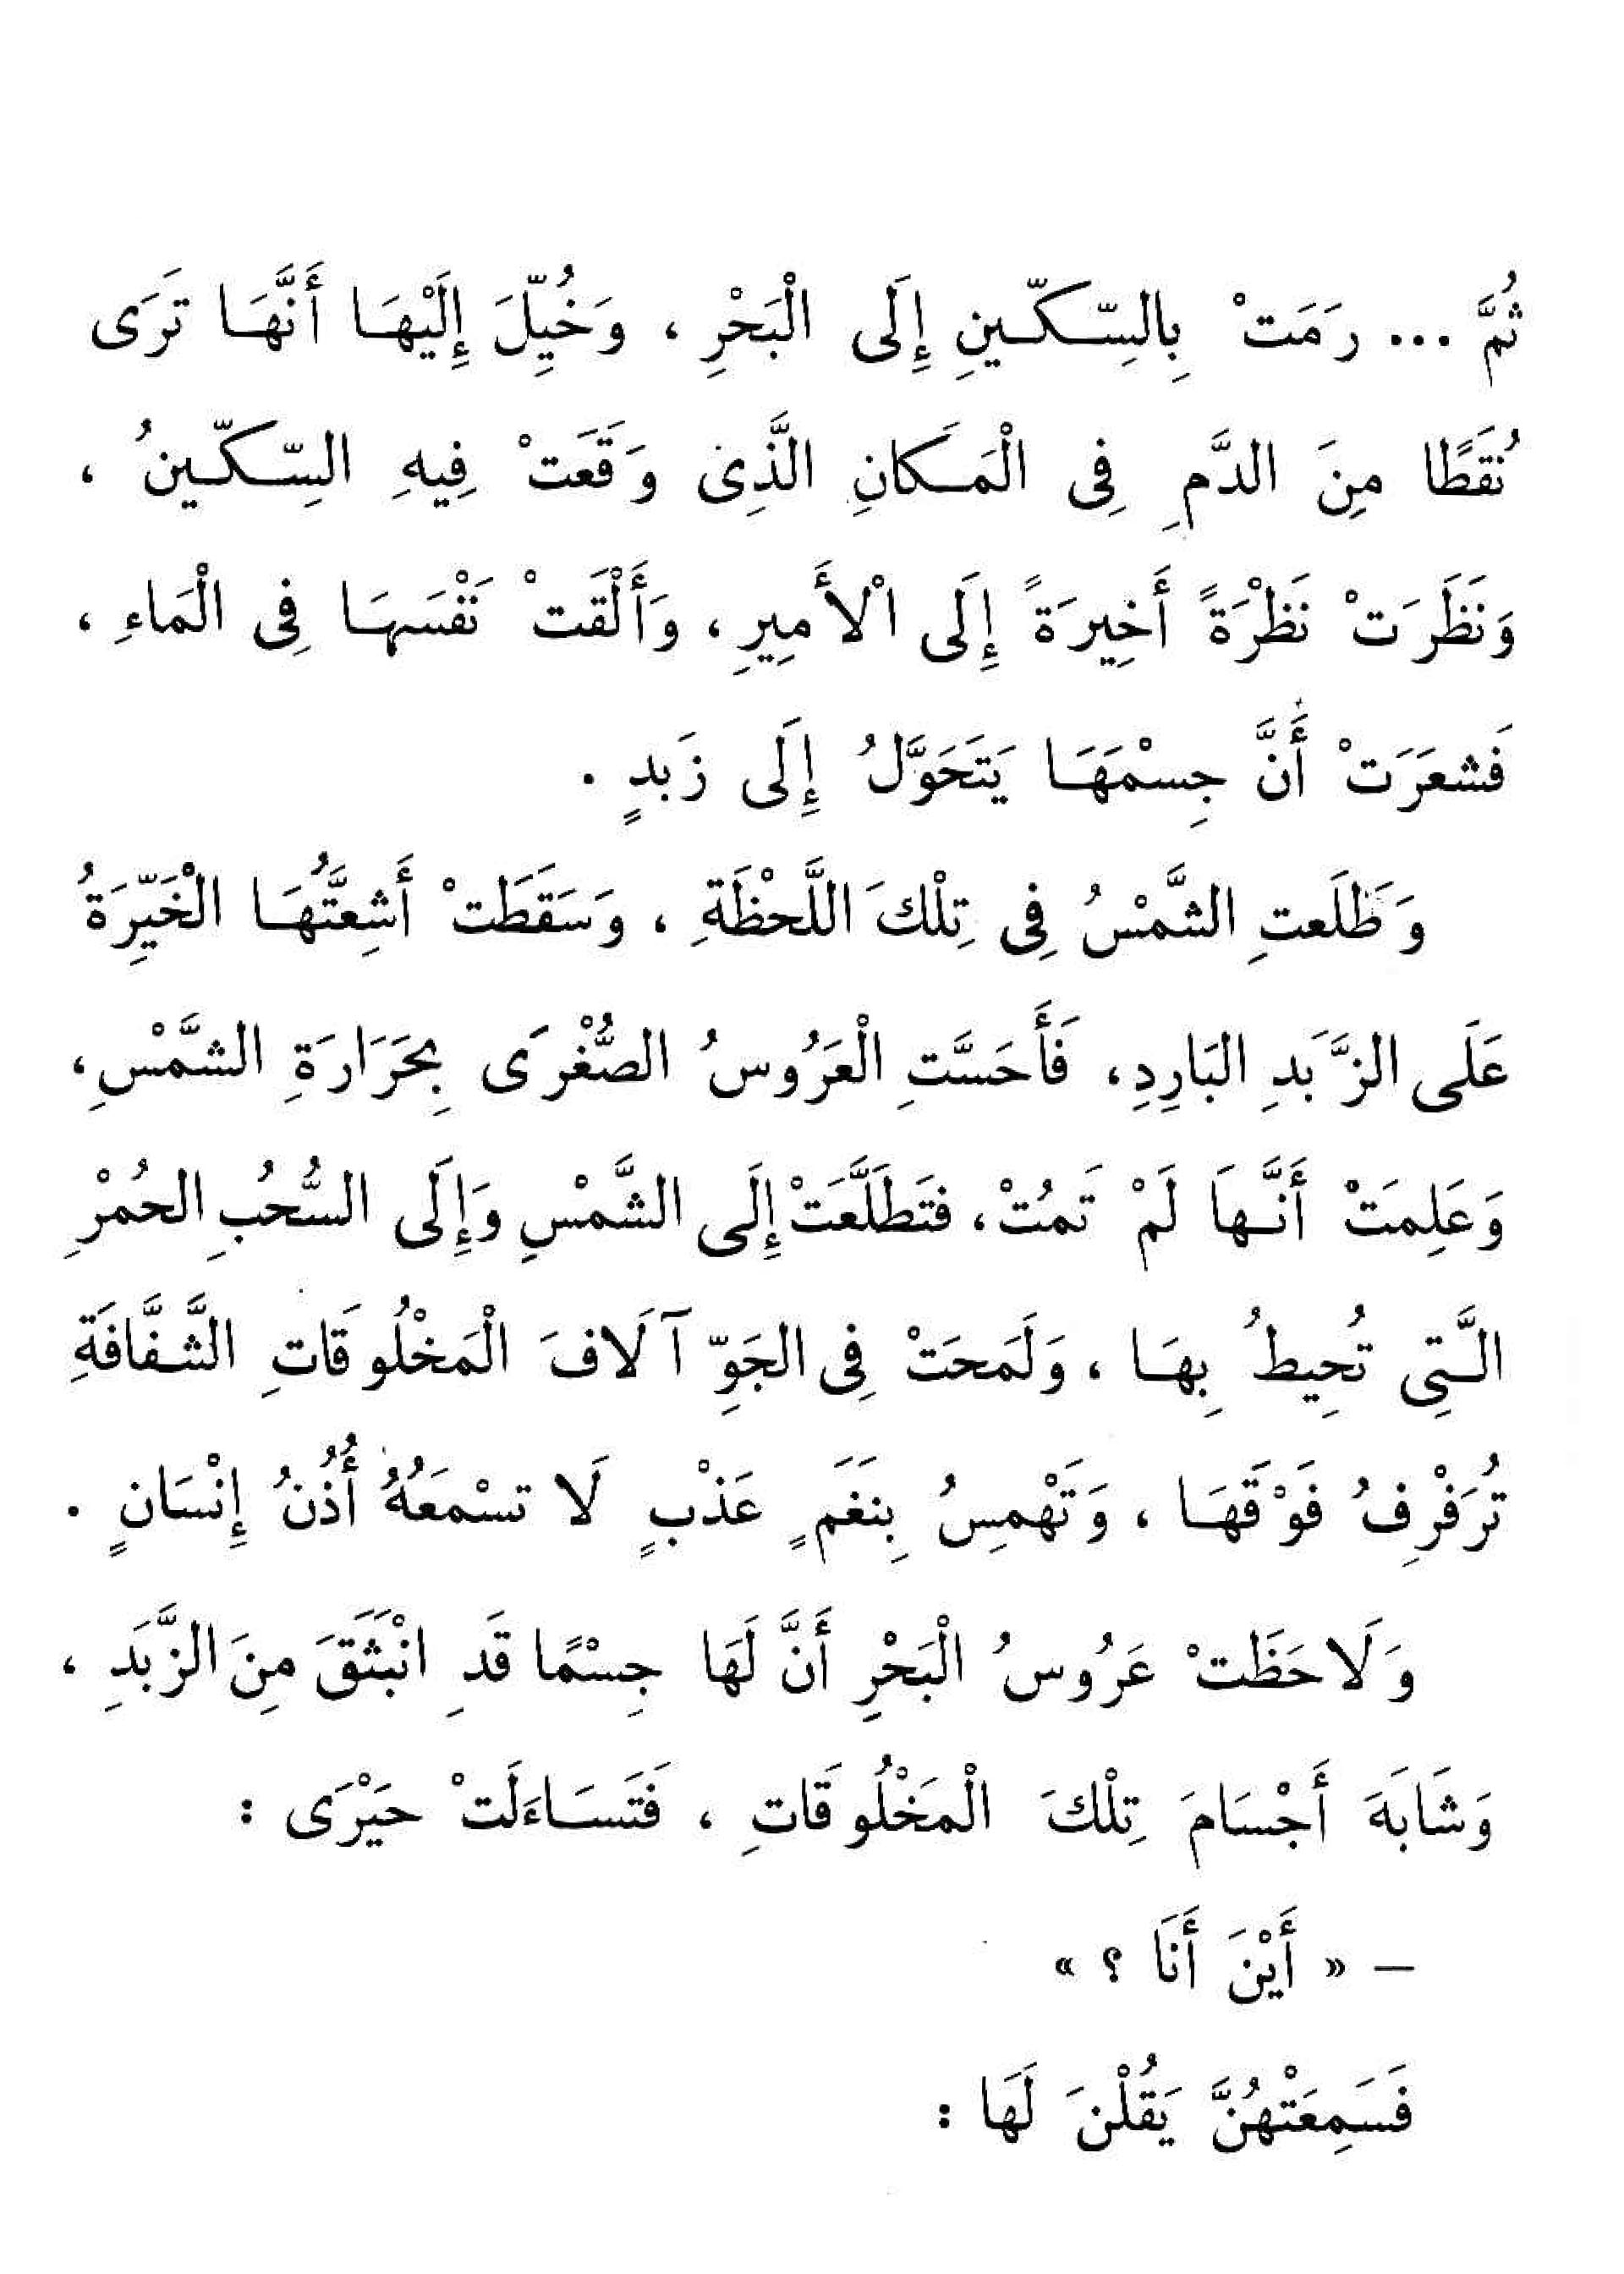 ثُمَّ ... رَمَتْ بِالسِّكِّينِ إِلَى الْبَحْرِ ، وَخُيِّلَ إِلَيْهَا أَنَّهَا تَرَى
نُقَطًا مِنَ الدَّمِ فِى الْمَكَانِ الَّذِى وَقَعَتْ فِيهِ السِّكِّينُ ،
وَنَظَرَتْ نَظْرَةً أَخِيرَةً إِلَى الْأَمِيرِ ، وَأَلْقَتْ نَفْسَهَا فِى الْمَاءِ ،
فَشعَرَتْ أَنَّ جِسْمَهَا يَتَحَوَّلُ إِلَى زَبَدٍ .
وَطَلَعتِ الشَّمْسُ فِى تِلْكَ اللَّحْظَةِ ، وَسَقَطَتْ أَشِعَّتُهَا الْخَيِّرَةُ
عَلَى الزَّبَدِ البَارِدِ ، فَأَحَسَّتِ الْعَرُوسُ الصُّغْرَى بِحَرَارَةِ الشَّمْسِ ،
وَعَلِمَتْ أَنَّهَا لَمْ تَمُتْ ، فتَطَلَّعَتْ إِلَى الشَّمْسِ وَإِلَى السُّحُبِ الحُمْرِ
الَّتِى تُحِيطُ بِهَا ، وَلَمَحَتْ فِى الجَوِّ آلَافَ الْمَخْلُوقَاتِ الشَّفَّافَةِ
تُرَفْرِفُ فَوْقَهَا ، وَتَهْمِسُ بِنَغَمٍ عَذْبٍ لَا تسْمَعُهُ أُذُنُ إِنْسَانٍ .
وَلَاحَظَتْ عَرُوسُ الْبَحْرِ أَنَّ لَهَا جِسْمًا قَدِ انْبَثَقَ مِنَ الزَّبَدِ ،
وَشَابَهَ أَجْسَامَ تِلْكَ الْمَخْلُوقَاتِ ، فَتَسَاءَلَتْ حَيْرَى :
– « أَيْنَ أَنَا ؟ »
فَسَمِعَتْهُنَّ يَقُلْنَ لَهَا :